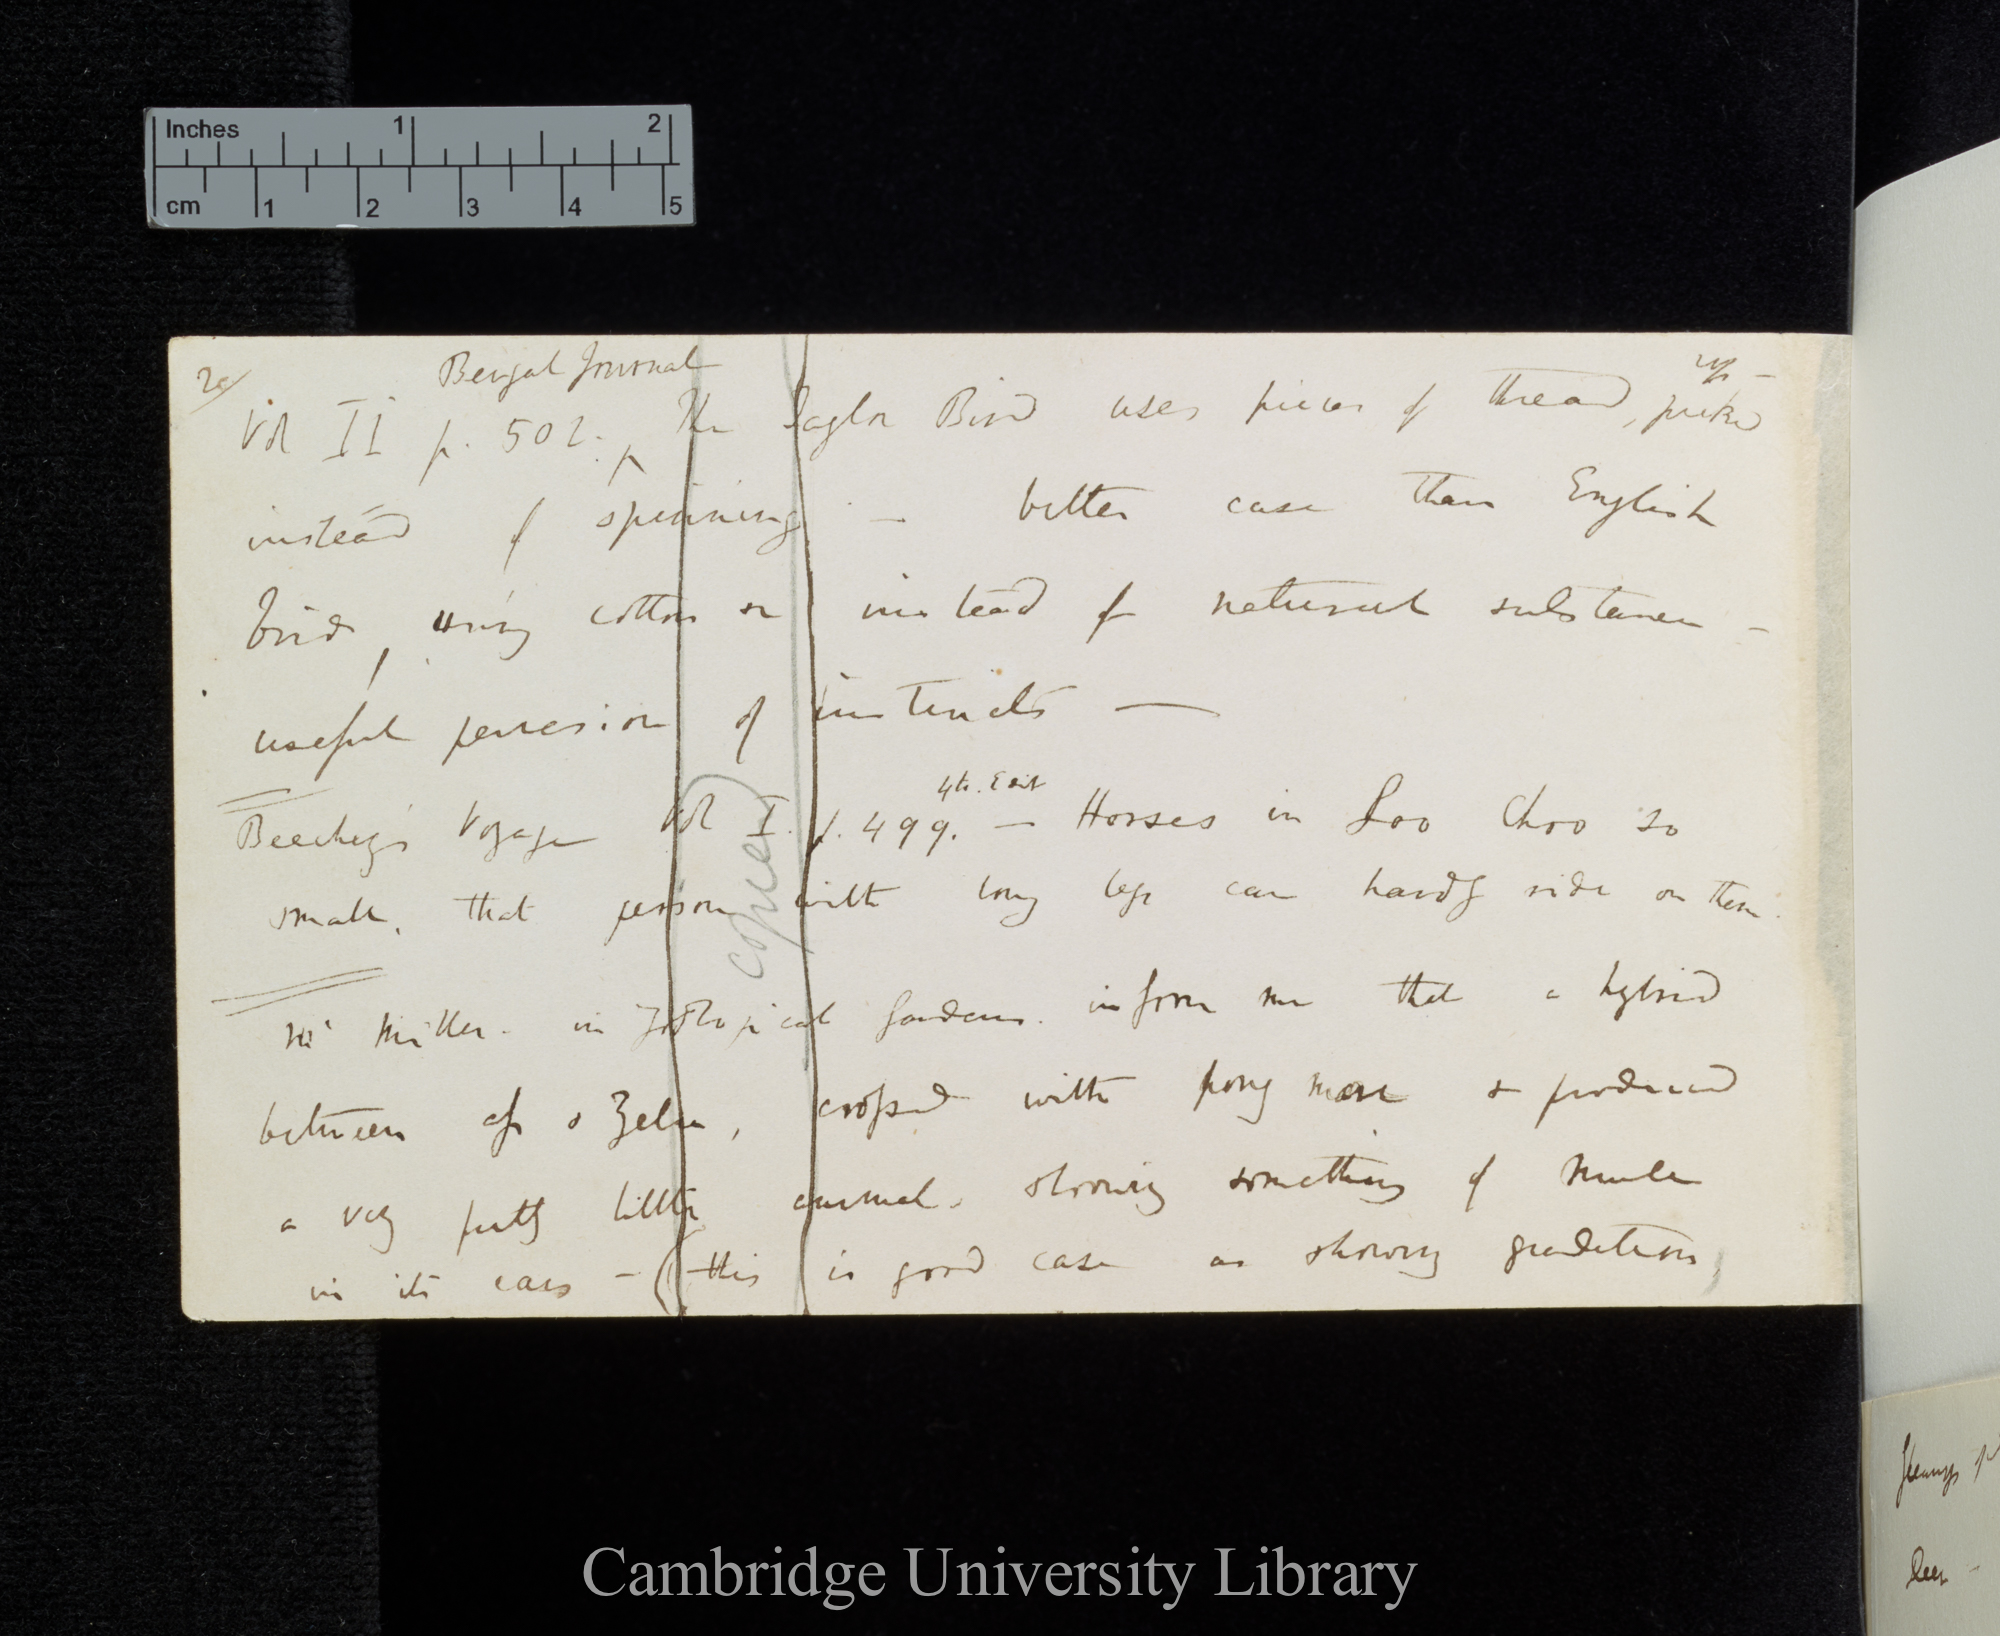 Inches 1 2
cm 1 2 3 4 5
Bengal Journal
up —
Vol II p. 502. The Taylor Bird uses pieces of thread, picked
instead of spinning — better case than English
birds, using cotton or instead of natural substances —
useful perversion of instincts —
4th. Edit
Beechey's Voyage Vol I. p. 499. — Horses in Loo Choo so
small, that person with long legs can hardly ride on them.
copied
Mr Miller. in Zoological Gardens. inform me that a hybrid
between ass & Zebra, crossed with pony mare & produced
a very pretty little animal. showing something of mule
in its ears — (this is good case as showing gradations,
Cambridge University Library